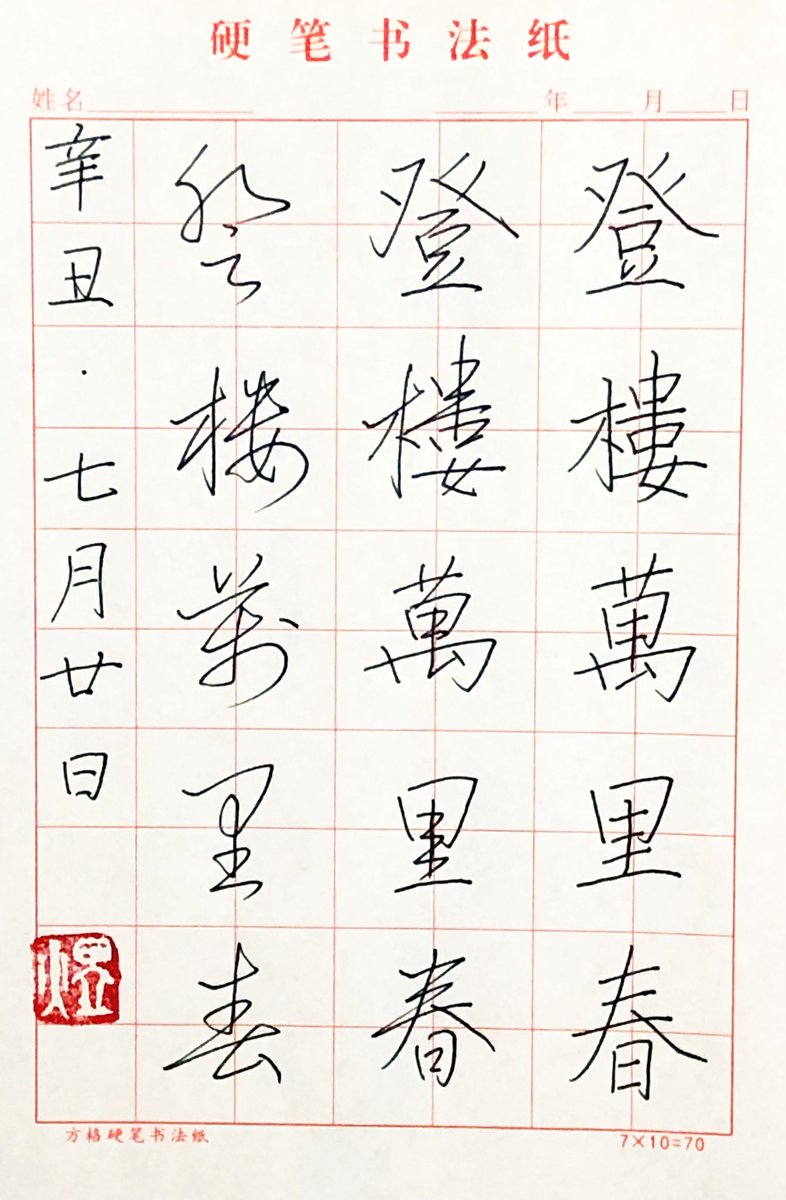 硬笔书法纸
姓名 年 月 日
登樓萬里春
登樓萬里春
登楼萬里春
辛丑·七月廿日
煜
方格硬笔书法纸
7×10=70